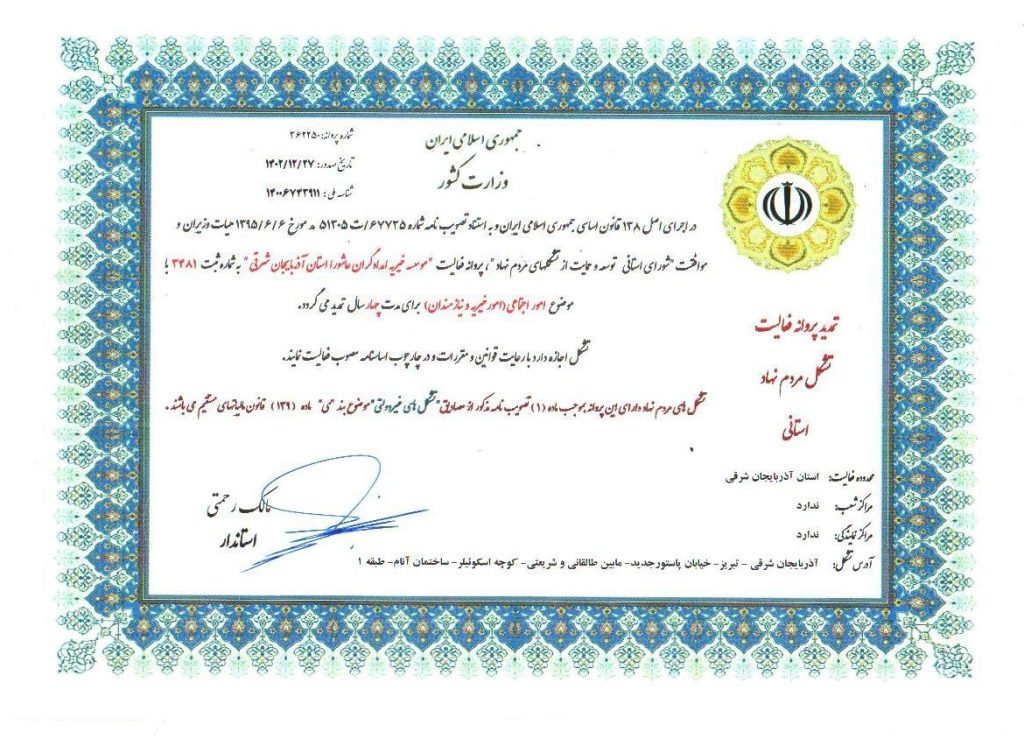 جمهوری اسلامی ایران
وزارت کشور
شماره پروانه: ۳۶۲۲۵۰
تاریخ صدور: ۱۴۰۲/۱۲/۲۷
شناسه ملی: ۱۴۰۰۶۷۴۳۹۱۱
در اجرای اصل ۱۳۸ قانون اساسی جمهوری اسلامی ایران و به استناد تصویب نامه شماره ۶۷۷۳۵/ت ۵۱۳۰۵ هـ مورخ ۱۳۹۵/۶/۶ هیات وزیران و
موافقت "شورای استانی توسعه و حمایت از تشکلهای مردم نهاد"، پروانه فعالیت "موسسه خیریه امدادگران عاشورا استان آذربایجان شرقی" به شماره ثبت ۳۴۸۱ با
موضوع امور اجتماعی (امور خیریه و نیازمندان) برای مدت چهار سال تمدید می گردد.
تشکل اجازه دارد با رعایت قوانین و مقررات و در چارچوب اساسنامه مصوب فعالیت نماید.
تشکل های مردم نهاد دارای این پروانه بموجب ماده (۱) تصویب نامه مذکور از مصادیق "تشکل های غیردولتی" موضوع بند "می" ماده (۱۳۹) قانون مالیاتهای مستقیم می باشند.
تمدید پروانه فعالیت
تشکل مردم نهاد
استانی
محدوده فعالیت: استان آذربایجان شرقی
مراکز شعب: ندارد
مراکز نمایندگی: ندارد
آدرس تشکل: آذربایجان شرقی - تبریز- خیابان پاستور جدید- مابین طالقانی و شریعتی- کوچه اسکوئیلر- ساختمان آنام- طبقه ۱
مالک رحمتی
استاندار